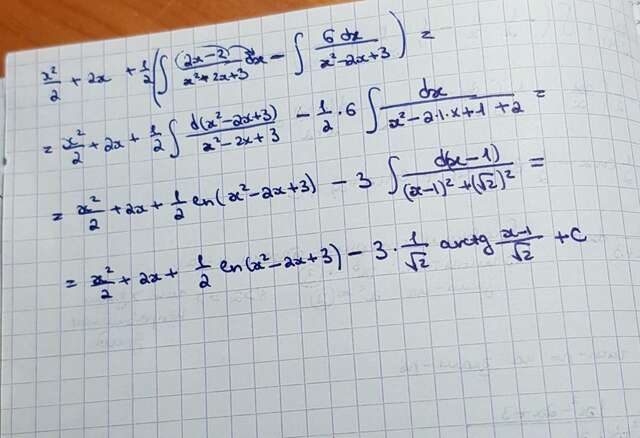 x²/2 + 2x + 1/2 (∫ (2x-2)dx/(x²+2x+3) - ∫ 6dx/(x²-2x+3)) =
= x²/2 + 2x + 1/2 ∫ d(x²-2x+3)/(x²-2x+3) - 1/2 · 6 ∫ dx/(x²-2·1·x+1+2) =
= x²/2 + 2x + 1/2 ln(x²-2x+3) - 3 ∫ d(x-1)/((x-1)²+(√2)²) =
= x²/2 + 2x + 1/2 ln(x²-2x+3) - 3 · 1/√2 arctg (x-1)/√2 + C